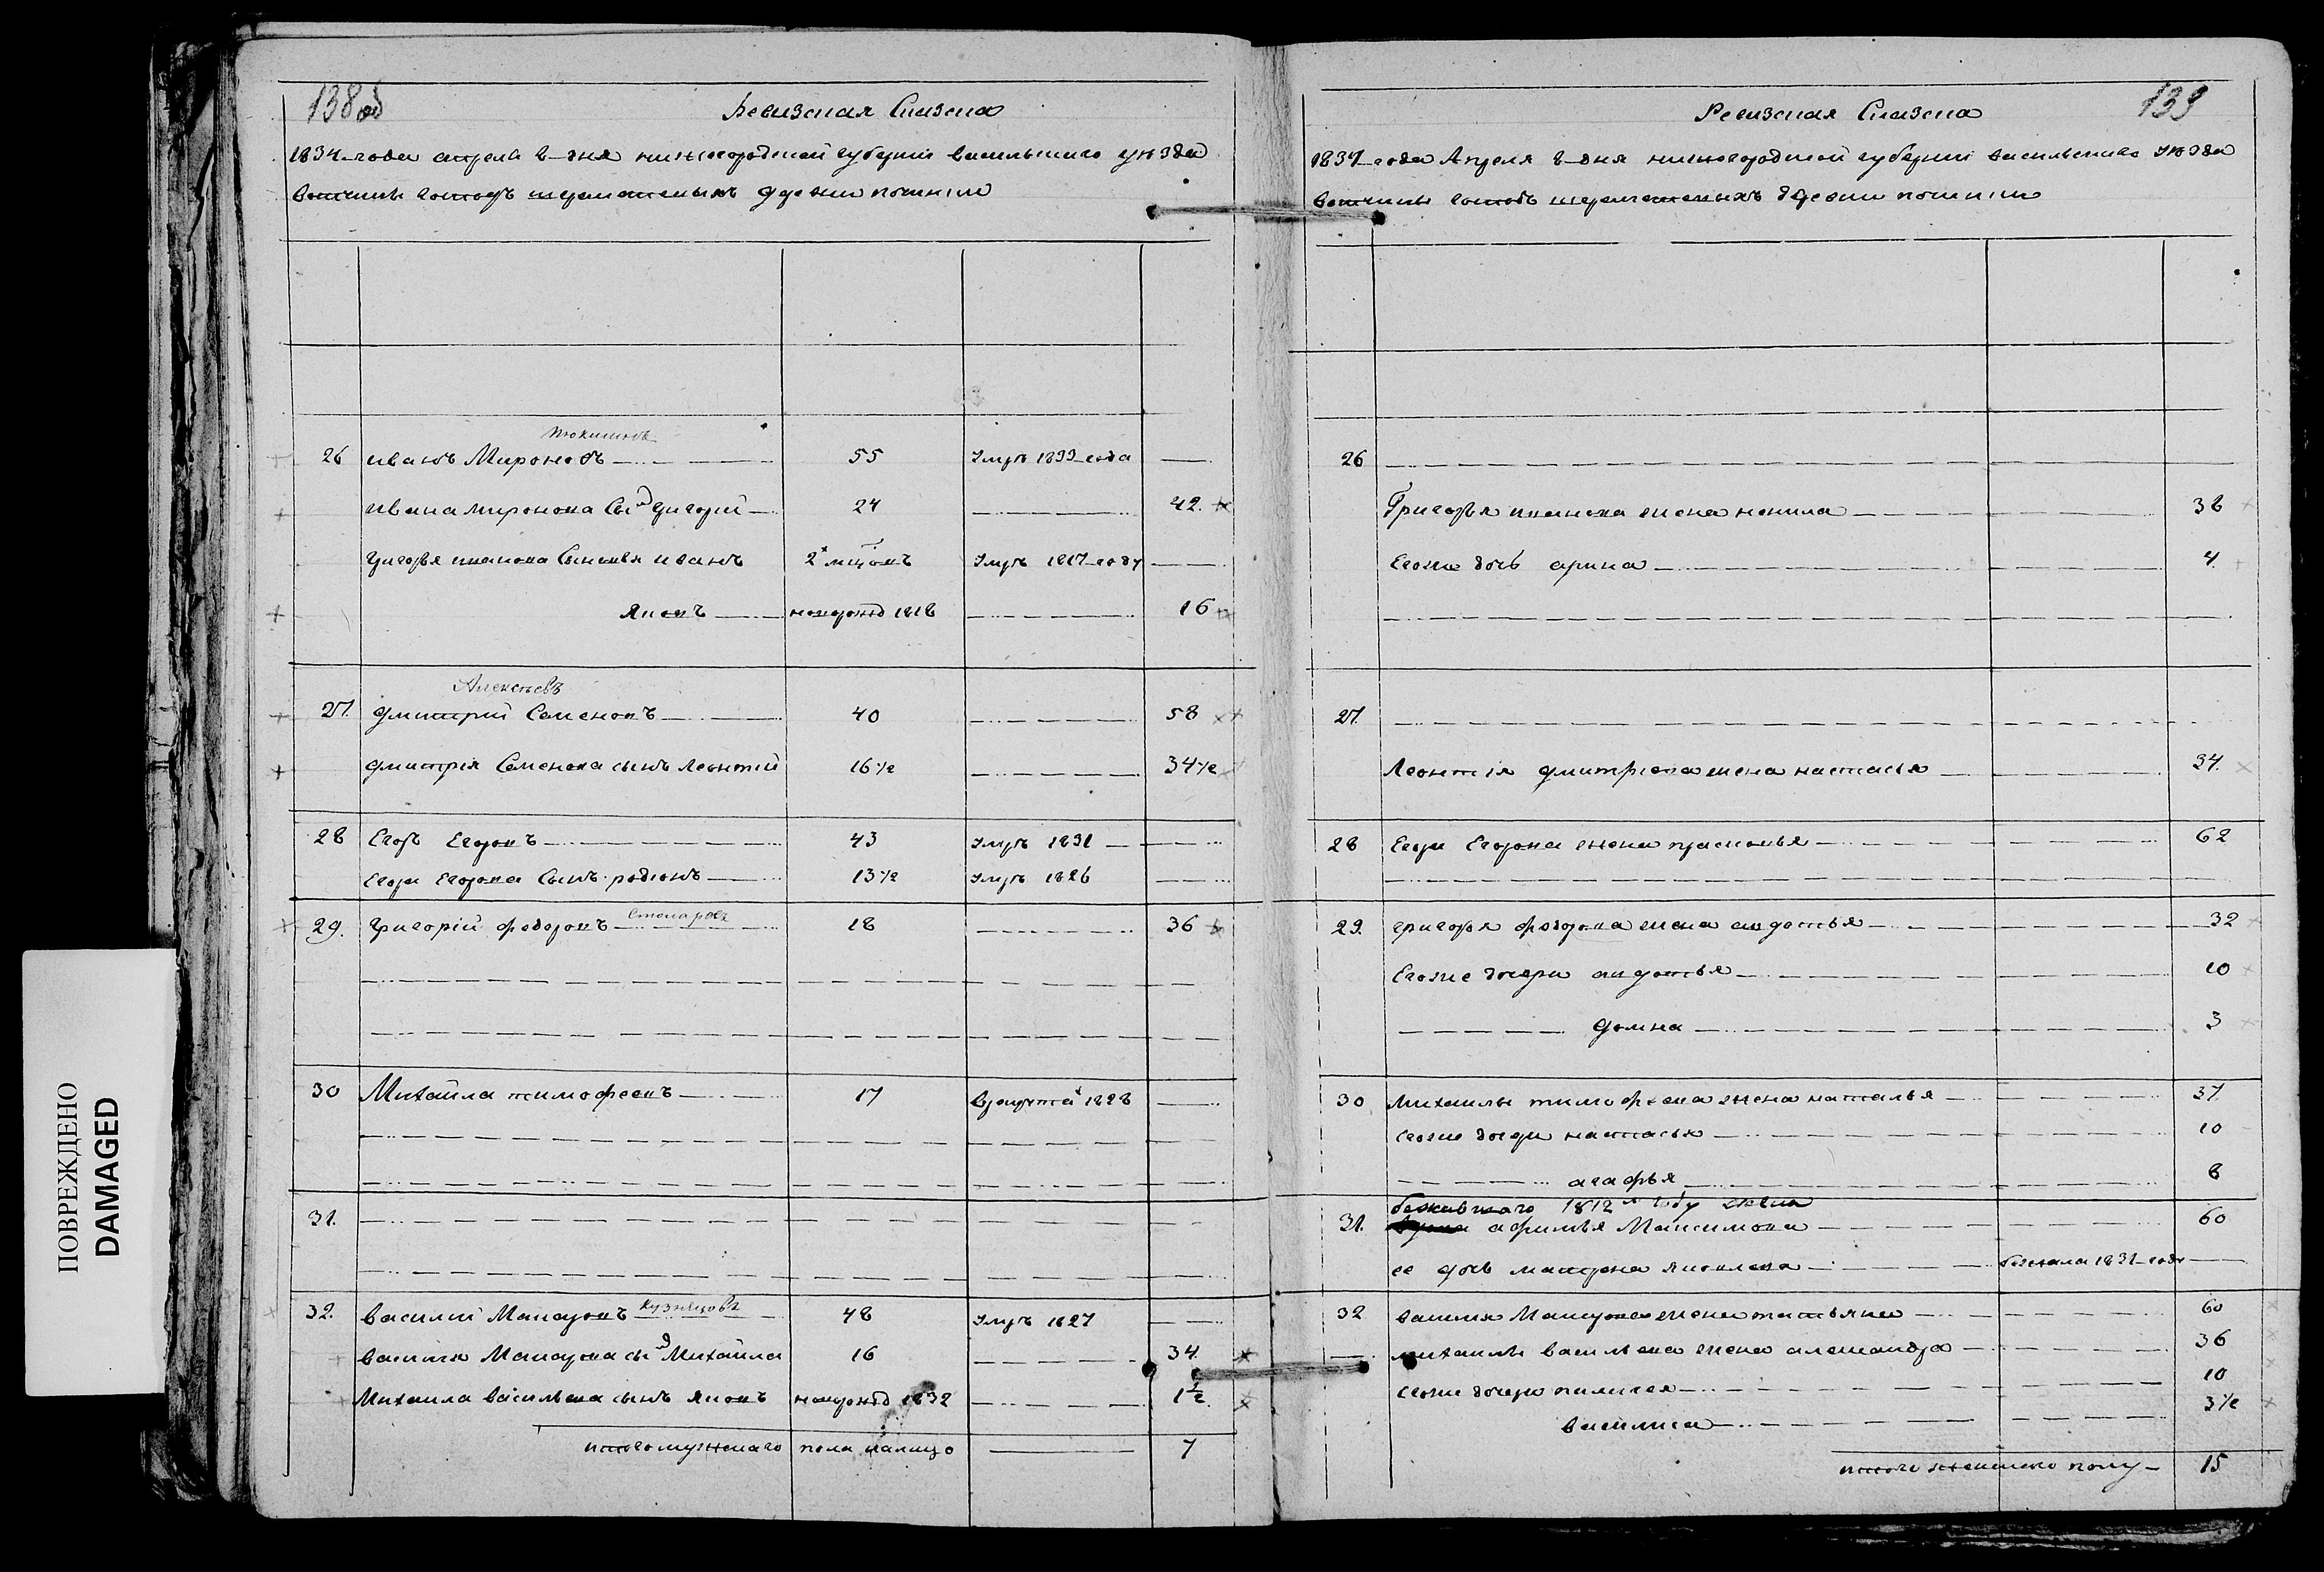 ПОВРЕЖДЕНО
DAMAGED
138 об
Ревизская Сказка
1834 года апреля 8 дня нижегородской губернии васильскаго уѣзда
вотчины господъ шереметевыхъ деревни починки
26 иванъ Мироновъ 55 Умръ 1833 года
ивана миронова Сынъ григорій 24 42
григорья иванова Сыновья иванъ 2х мцовъ Умръ 1817 году
яковъ новорожд 1818 16
Алексѣевъ
27 дмитрий Семеновъ 40 58
дмитрія Семенова сынъ леонтій 16 1/2 34 1/2
28 Егоръ Егоровъ 43 Умръ 1831
Егора Егорова Сынъ родіонъ 13 1/2 Умръ 1826
29. григорій федоровъ Столяровъ 18 36
30 Михаила тимофеевъ 17 в рекруты 1828
31.
32. василий Макаровъ Кузнецовъ 48 Умръ 1827
василья Макарова сынъ Михаила 16 34
Михаила васильева сынъ яковъ новорожд 1832 1 1/2
итого мужескаго пола налицо 7
139
Ревизская Сказка
1834 года Апреля 8 дня нижегородской губернии васильскаго уѣзда
вотчины господъ шереметевыхъ деревни починки
26
Григорья иванова жена ненила 38
Егоже дочь арина 4
27
Леонтія дмитріева жена настасья 34
28 Егора Егорова жена прасковья 62
29. григорья федорова жена авдотья 32
Егоже дочери авдотья 10
домна 3
30 михаилы тимофеева жена наталья 37
Егоже дочери настасья 10
агафья 8
бежавшаго 1812 году жена
31. афимья Максимова 60
ее дочь матрена яковлева бежала 1831 году
32 василья Макарова жена татьяна 60
михаилы васильева жена александра 36
Егоже дочери пелагея 10
василиса 3 1/2
итого женскаго полу 15